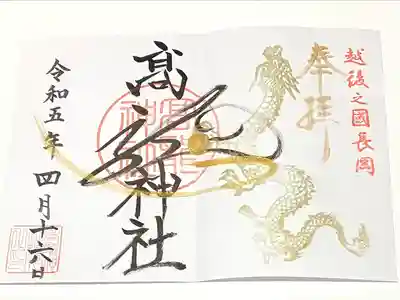 越後之國長岡
奉拝
髙龍神社
令和五年 四月十六日